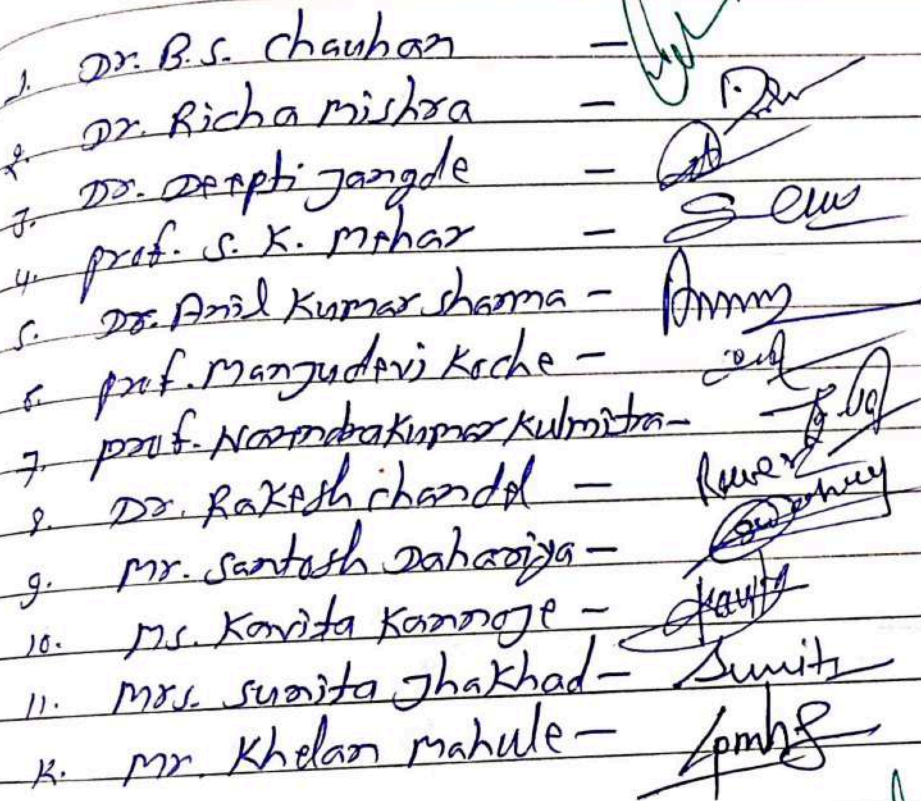 1. Dr. B.S. Chauhan -
2. Dr. Richa Mishra -
3. Dr. Deepti Jangde -
4. Prof. S. K. Mehar -
5. Dr. Anil Kumar Sharma -
6. Prof. Manjudevi Koche -
7. Prof. Narendra Kumar Kulmitra -
8. Dr. Rakesh Chandel -
9. Mr. Santosh Dahariya -
10. Ms. Kavita Kannoje -
11. Mrs. Sunita Jhakhad - Sunita
12. Mr. Khelan Mahule -